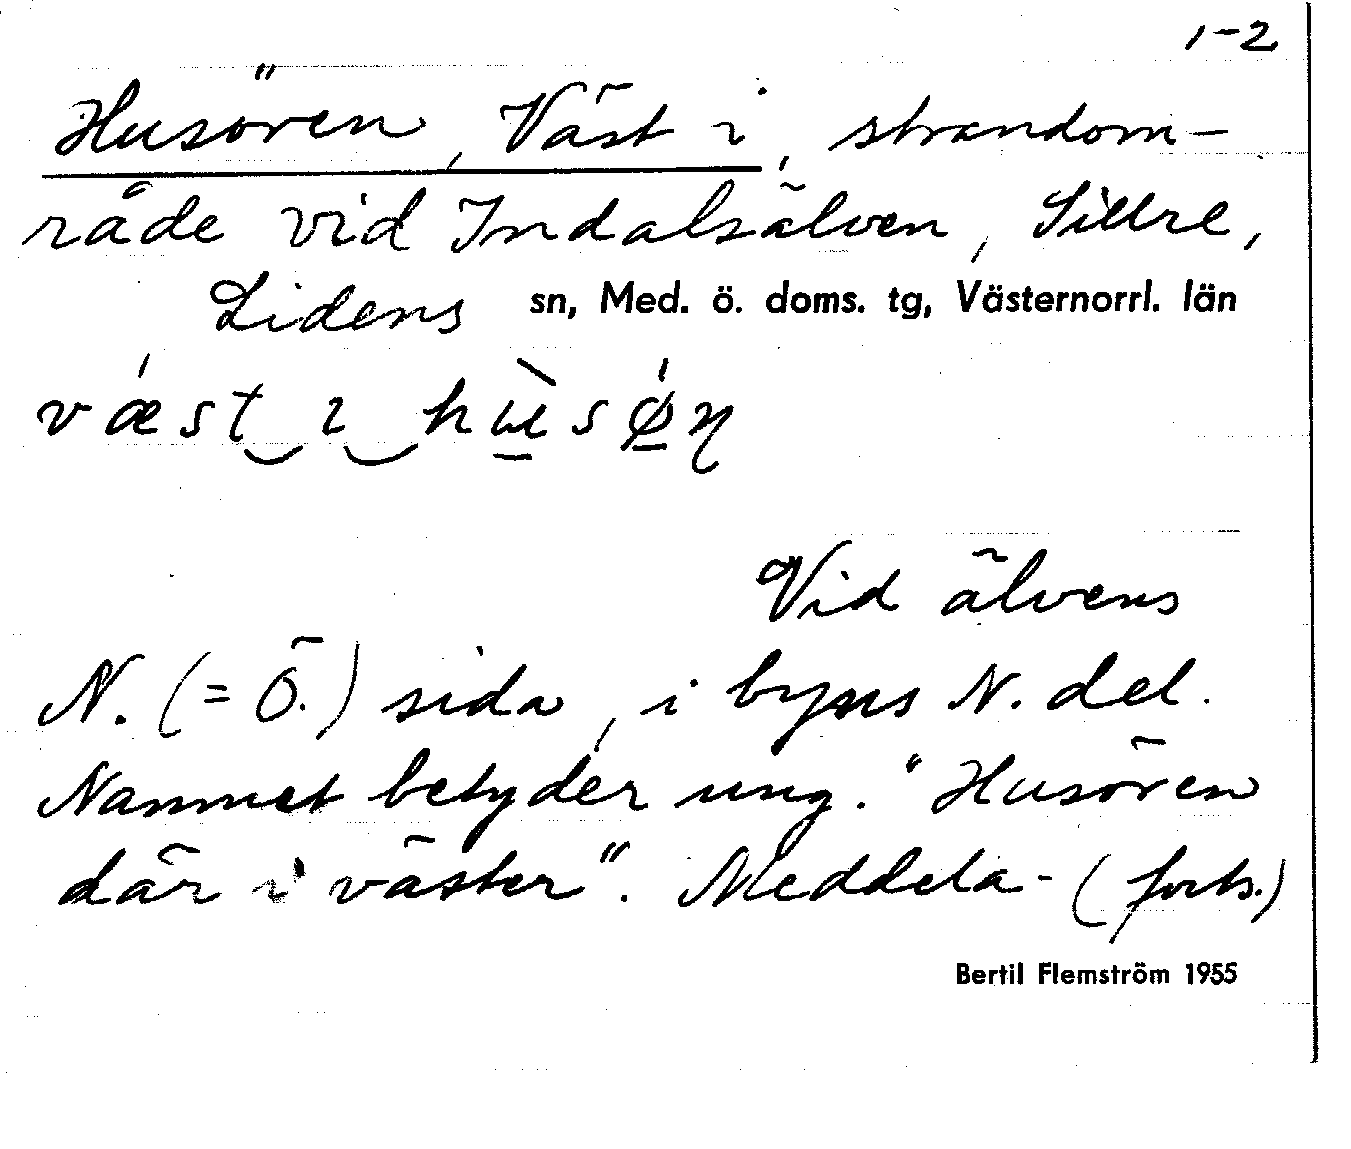 1-2
Husören, Väst i, strandom-
råde vid Indalsälven, Sillre,
Lidens sn, Med. ö. doms. tg, Västernorrl. län
væst i hu̲sø̲n
Vid älvens
N. (= Ö.) sida, i byns N. del.
Namnet betyder ung. "Husören
där i väster". Meddela- (forts.)
Bertil Flemström 1955